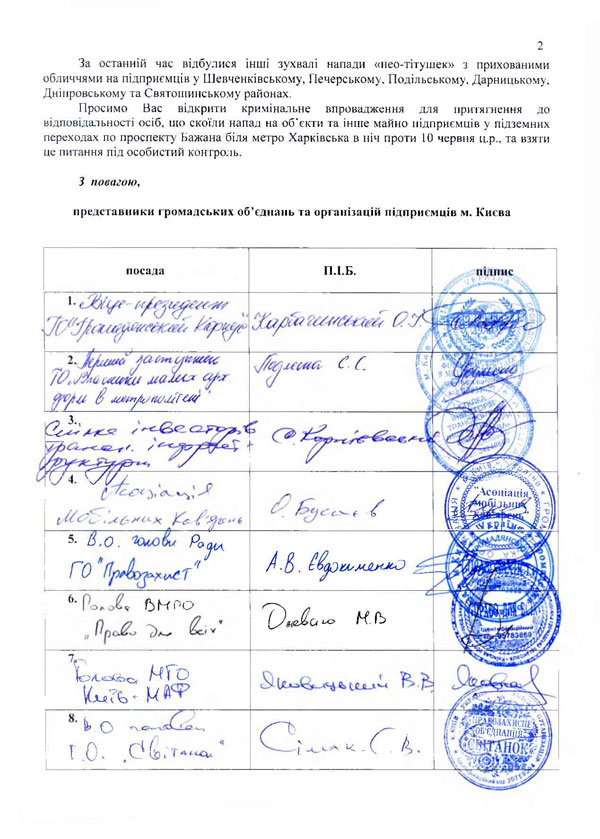 2
За останній час відбулися інші зухвалі напади «нео-тітушек» з прихованими
обличчями на підприємців у Шевченківському, Печерському, Подільському, Дарницькому,
Дніпровському та Святошинському районах.
Просимо Вас відкрити кримінальне впровадження для притягнення до
відповідальності осіб, що скоїли напад на об'єкти та інше майно підприємців у підземних
переходах по проспекту Бажана біля метро Харківська в ніч проти 10 червня ц.р., та взяти
це питання під особистий контроль.
З повагою,
представники громадських об'єднань та організацій підприємців м. Києва
посада П.І.Б. підпис
1. Віце-президент
ГО "Громадянський
О.
2. Перший заступник
ГО "Власники малих арх.
форм в метрополітені"
С.С.
3. Спілка інвесторів
трансп.
4. Асоціація
Мобільних Кав'ярень
О.
"Асоціація
мобільних
кав'ярень"
5. В.О. голови Ради
ГО "Правозахист"
А.В. Євдокименко
6. Голова ВМГО
"Право для всіх"
М.В
7. Голова МГО
Київ-МАФ
В.В.
8. В О голови
Г.О. "Світанок"
Сімак. С. В.
ПРАВОЗАХИСНЕ
ОБ'ЄДНАННЯ
СВІТАНОК